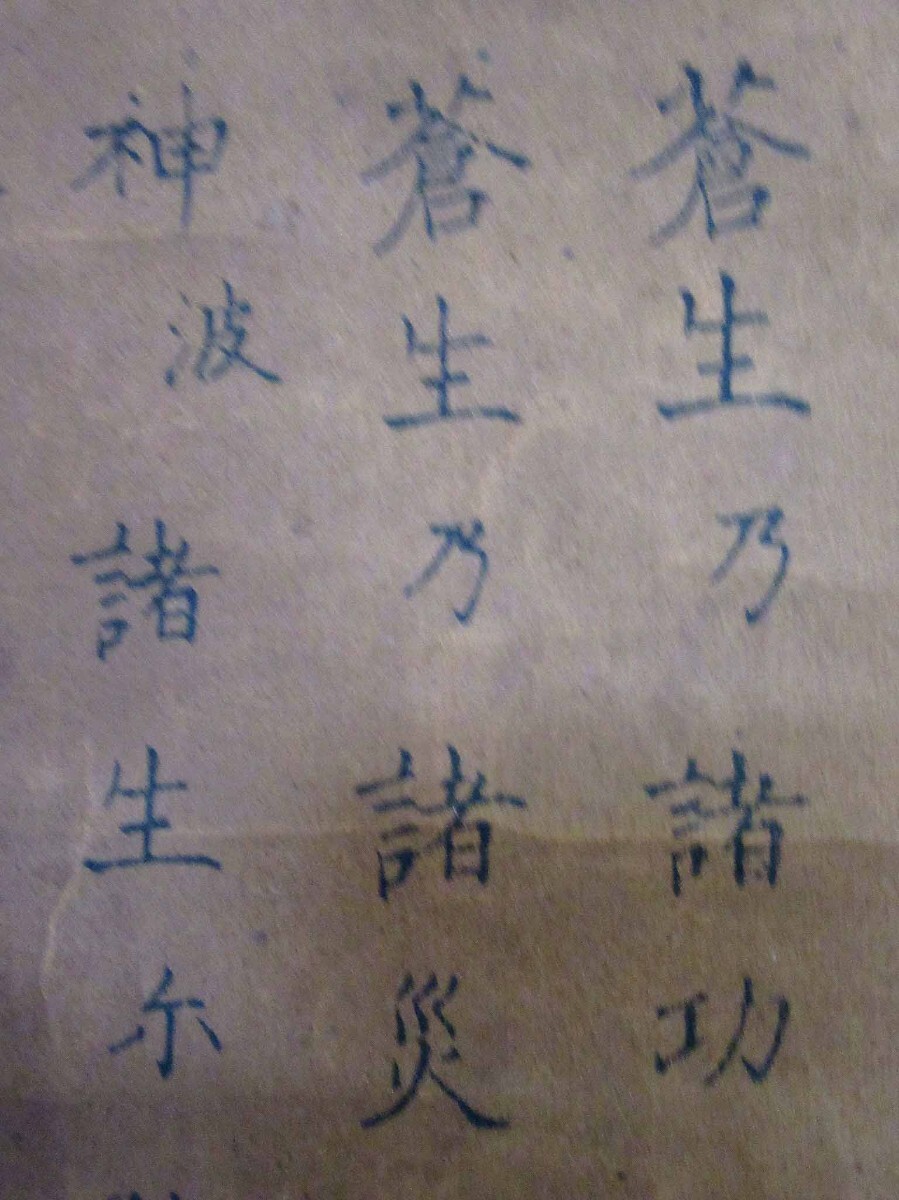 蒼生乃諸功
蒼生乃諸災
神波諸生尓